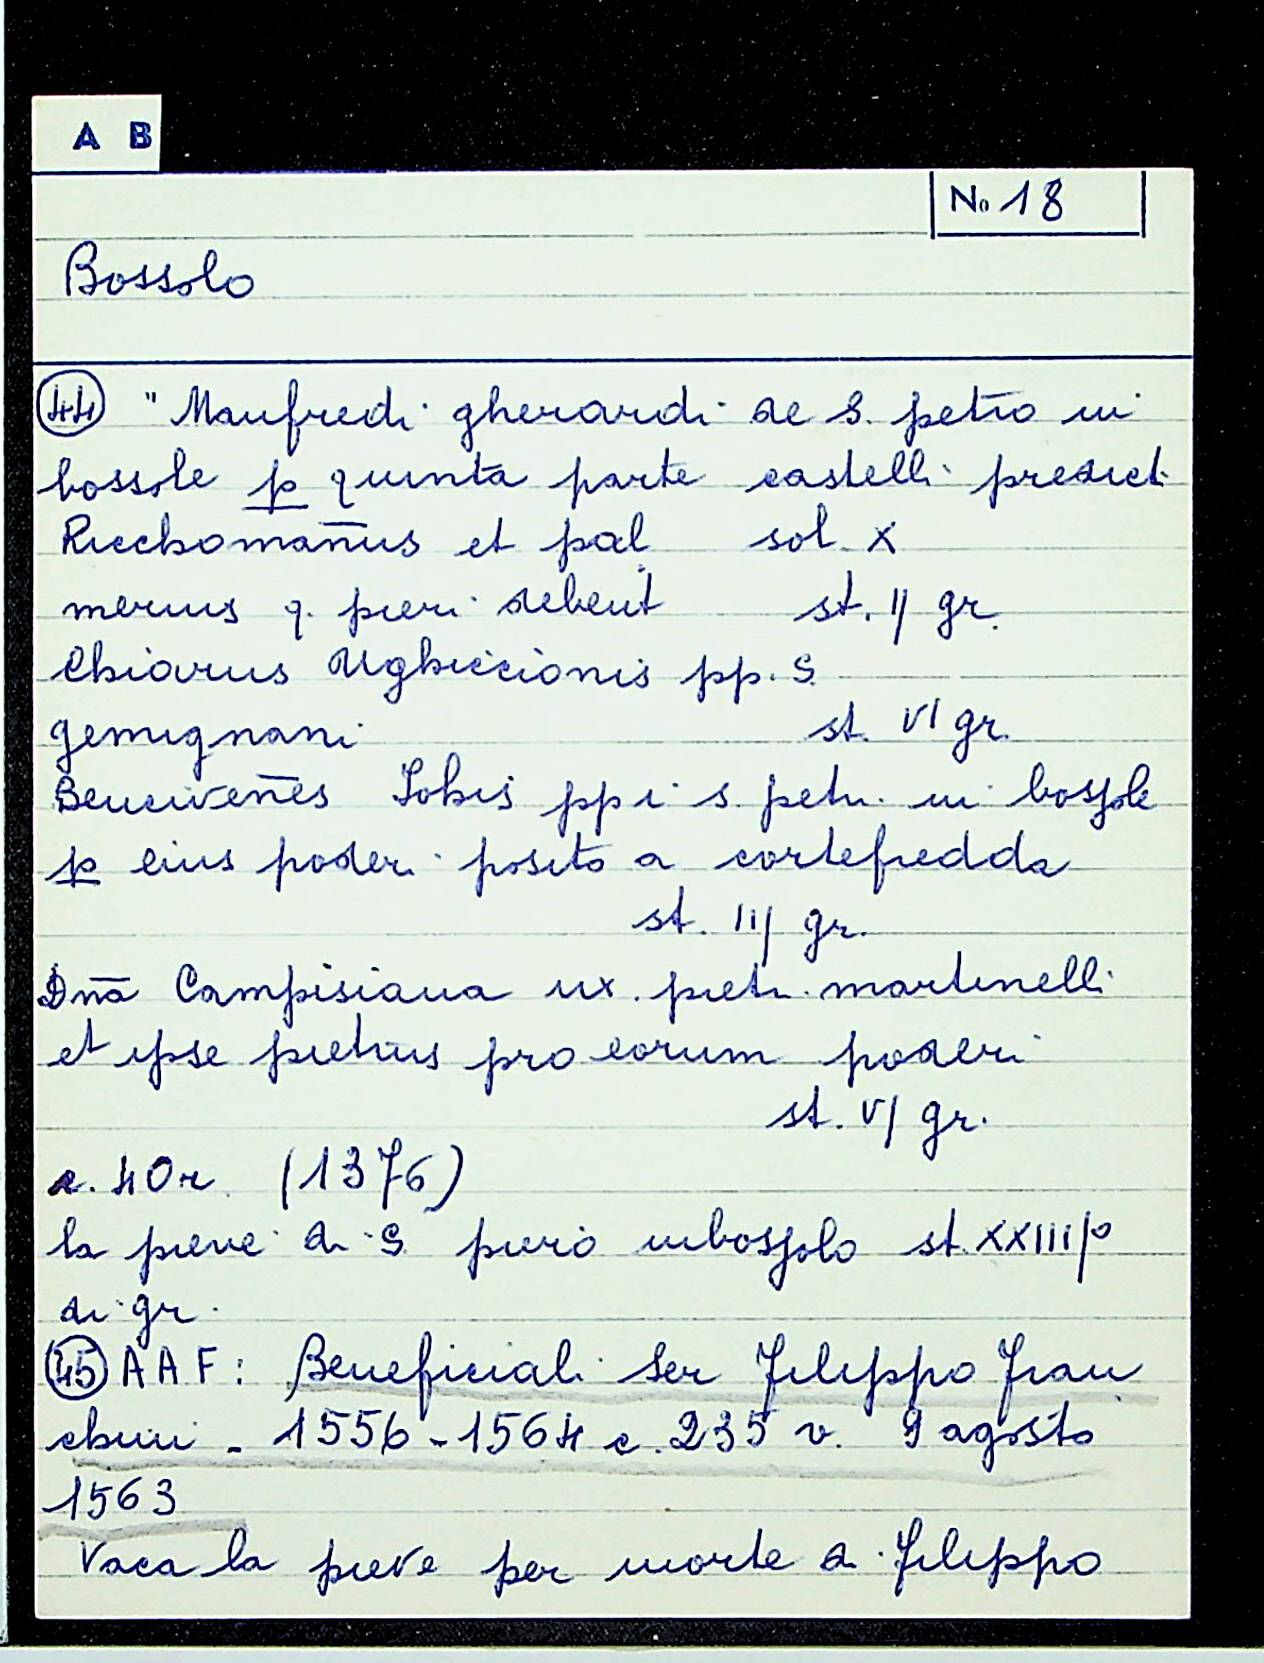 A B
No 18
Bossolo
(44) "Manfredi gherardi de S. petro in
bossole p quinta parte castelli predict.
Ricchomañus et pal sol. X
merius q. pieri debent st. II gr.
Chiarus Ughiccionis pp. S.
gemignani st. VI gr.
Benciveñes Johis pp i s. petri in bossole
p eius poderi posito a cortefredda
st. III gr.
Dña Campisiana ux. pietri martinelli
et ipse pietrus pro eorum poderi
st. VI gr.
c. 40r. (1376)
la pieve di S. piero inbossolo st. XXIIIIº
di gr.
(45) AAF: Beneficiali Ser Filippo Fran
chini - 1556-1564 c. 235 v. 9 agosto
1563
Vaca la pieve per morte di Filippo